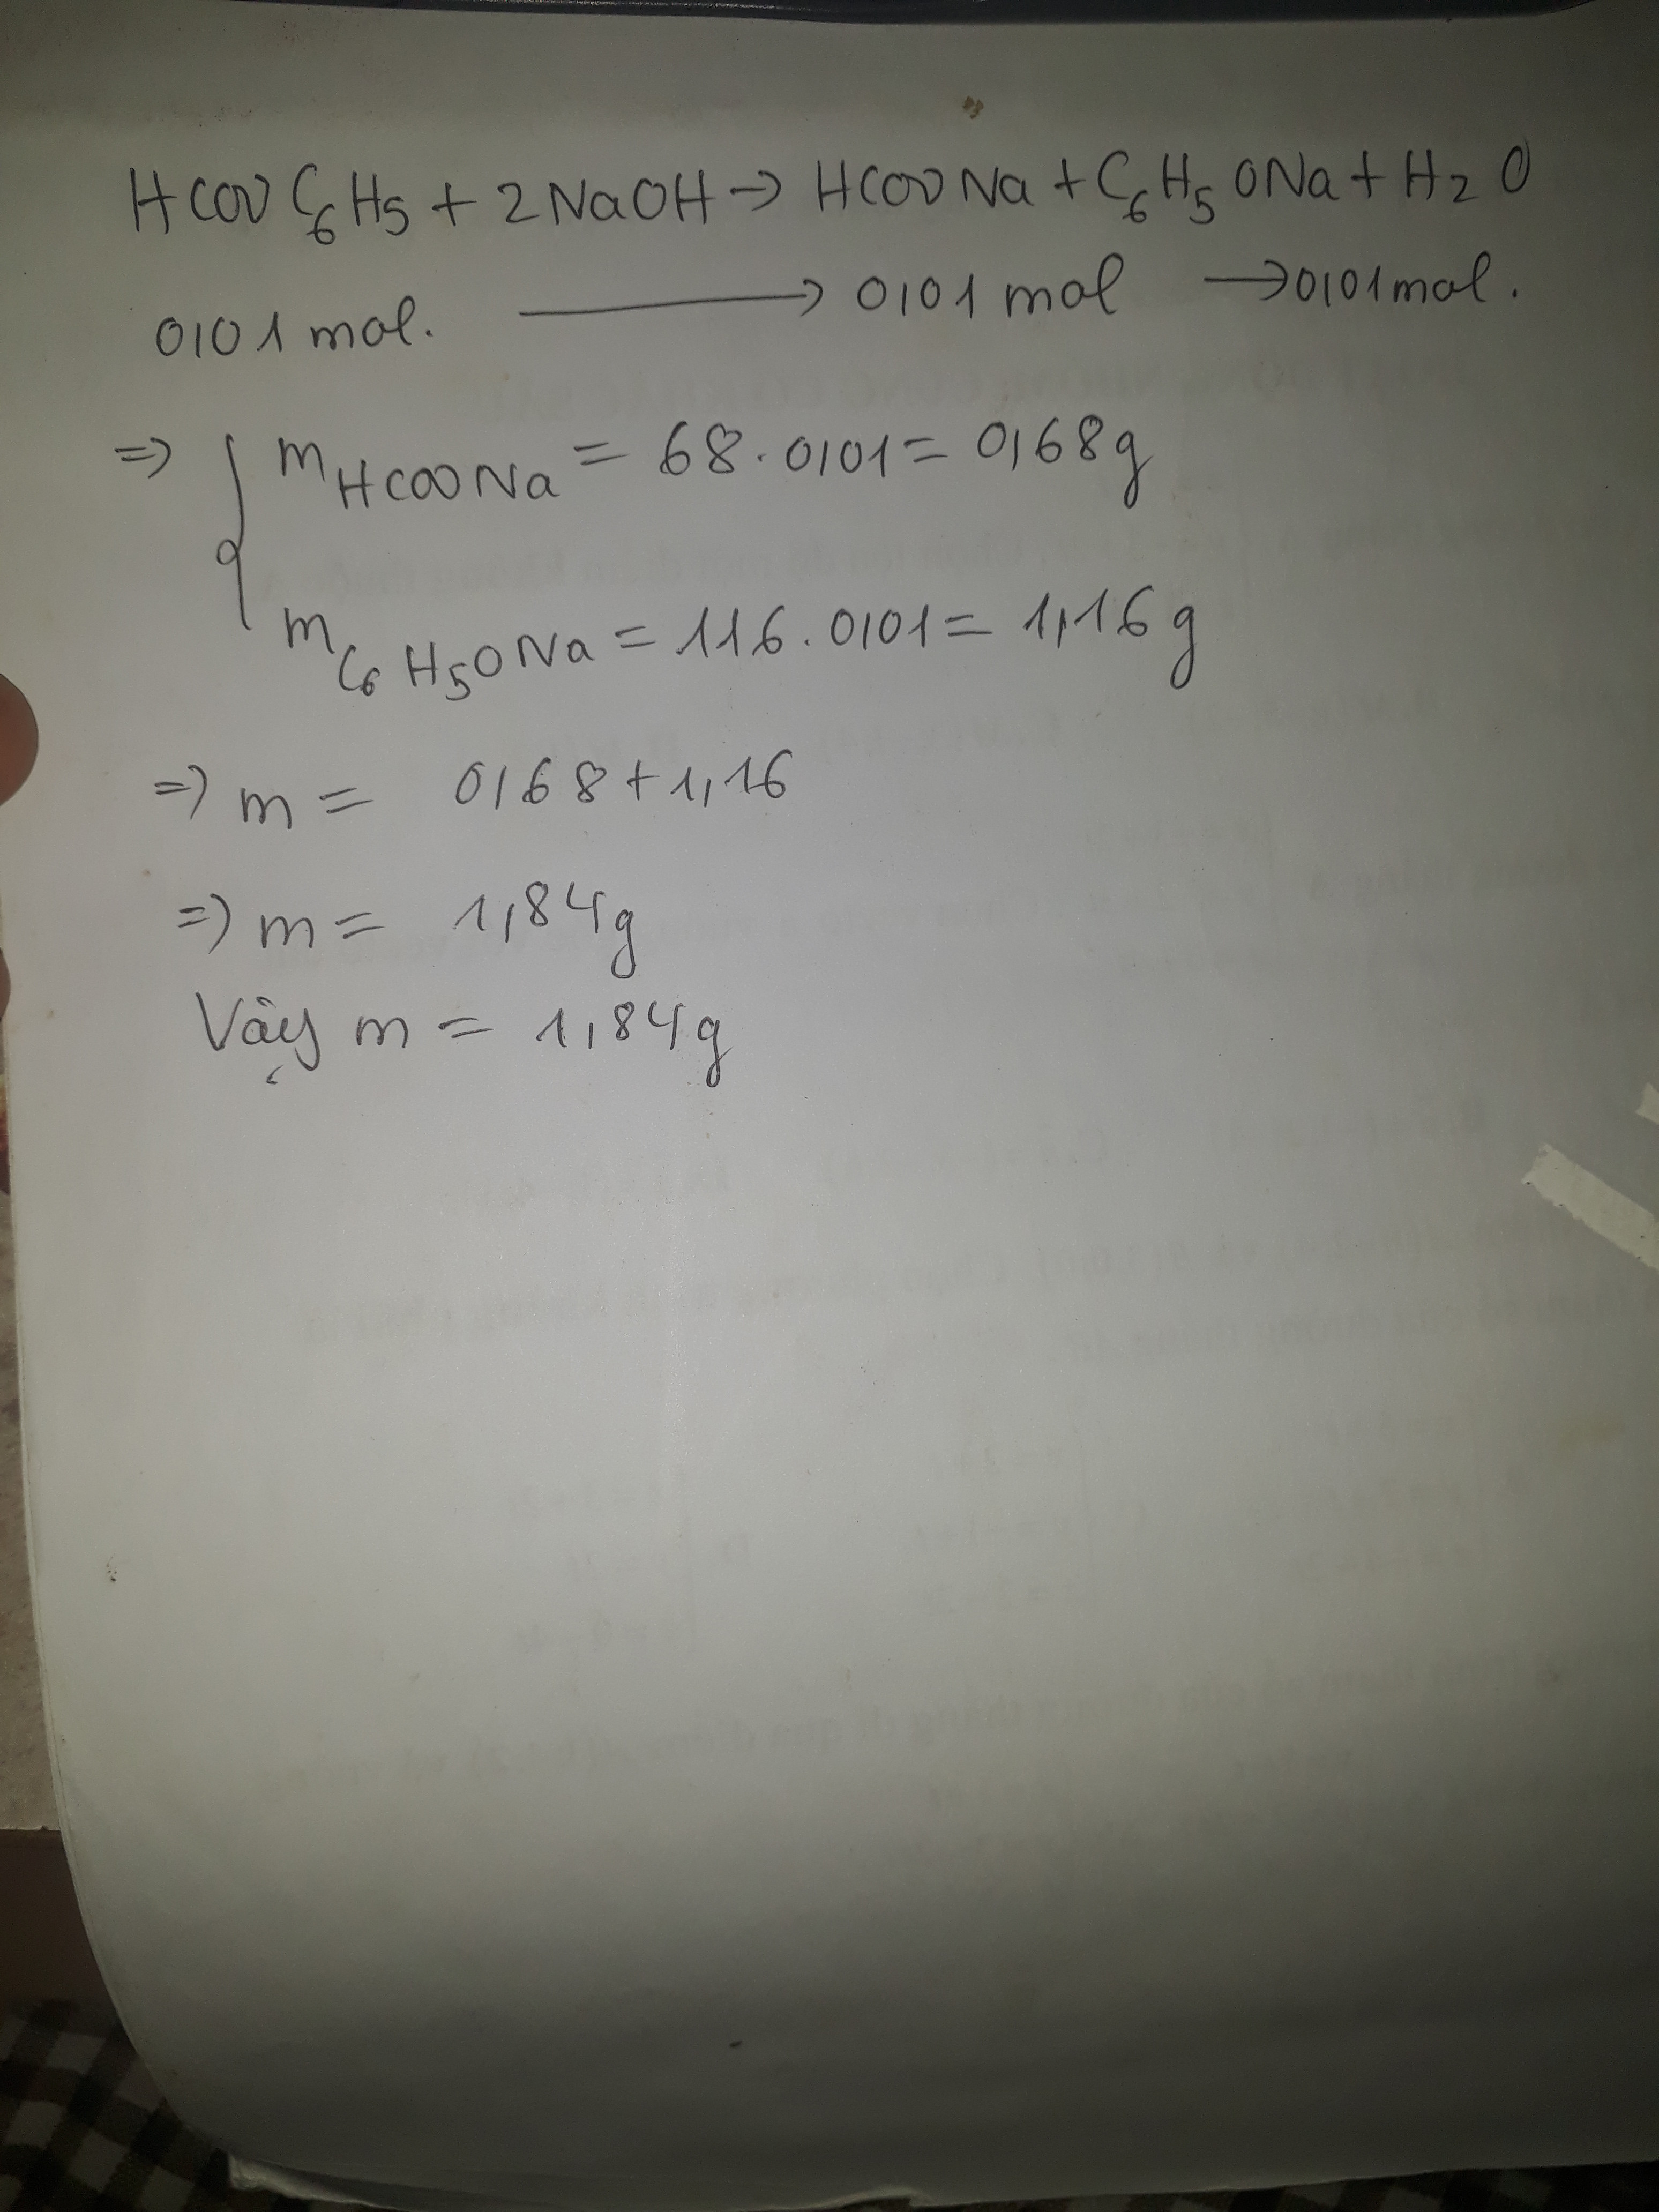 HCOOC₆H₅ + 2NaOH → HCOONa + C₆H₅ONa + H₂O
0,01 mol. → 0,01 mol → 0,01 mol.
=> { m HCOONa = 68 . 0,01 = 0,68g
m C₆H₅ONa = 116 . 0,01 = 1,16 g
=> m = 0,68 + 1,16
=> m = 1,84g
Vậy m = 1,84g